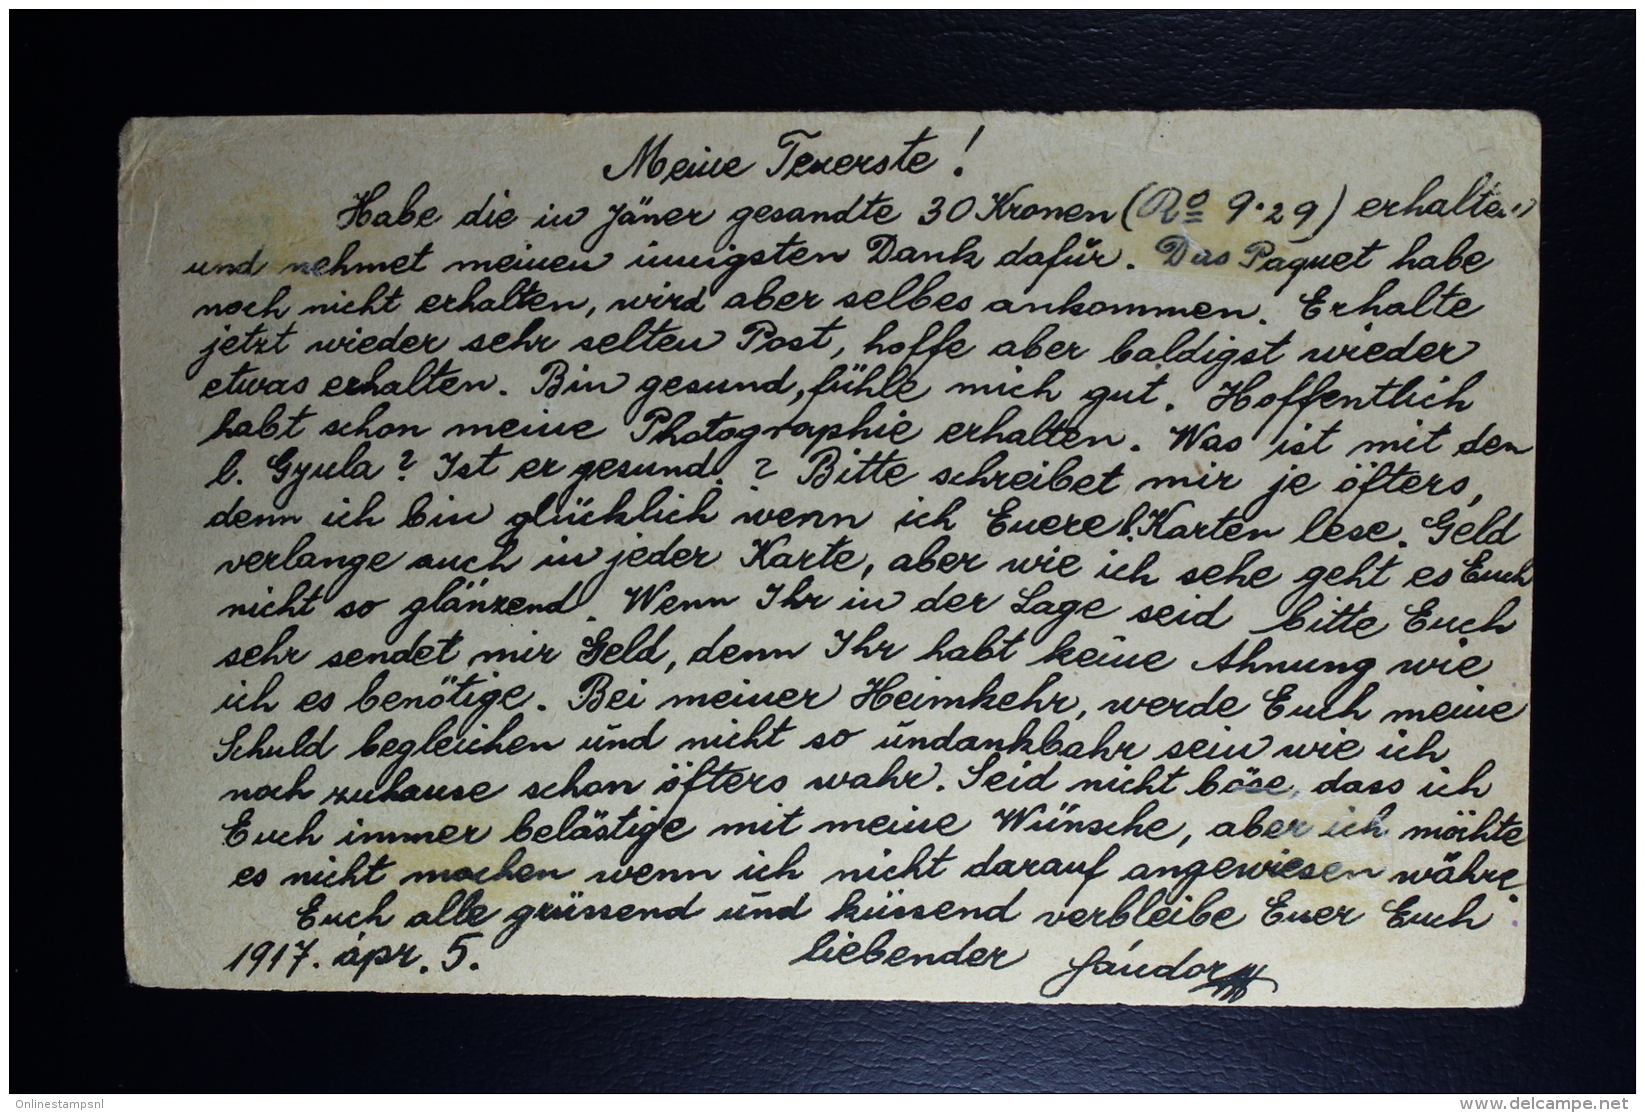 Meine Teuerste!
Habe die in Jäner gesandte 30 Kronen (Ro 9·29) erhalten
und nehmet meinen innigsten Dank dafür. Das Paquet habe
noch nicht erhalten, wird aber selbes ankommen. Erhalte
jetzt wieder sehr selten Post, hoffe aber baldigst wieder
etwas erhalten. Bin gesund, fühle mich gut. Hoffentlich
habt schon meine Photographie erhalten. Was ist mit den
l. Gyula? Ist er gesund.? Bitte schreibet mir je öfters,
denn ich bin glücklich wenn ich Euere l. Karten lese. Geld
verlange auch in jeder Karte, aber wie ich sehe geht es Euch
nicht so glänzend. Wenn Ihr in der Lage seid bitte Euch
sehr sendet mir Geld, denn Ihr habt keine Ahnung wie
ich es benötige. Bei meiner Heimkehr, werde Euch meine
Schuld begleichen und nicht so undankbahr sein wie ich
noch zuhause schon öfters wahr. Seid nicht böse, dass ich
Euch immer belästige mit meine Wünsche, aber ich möchte
es nicht machen wenn ich nicht darauf angewiesen währe.
Euch alle grüssend und küssend verbleibe Euer Euch
1917. ápr. 5. liebender Sándor
Onlinestampsnl
www.delcampe.net